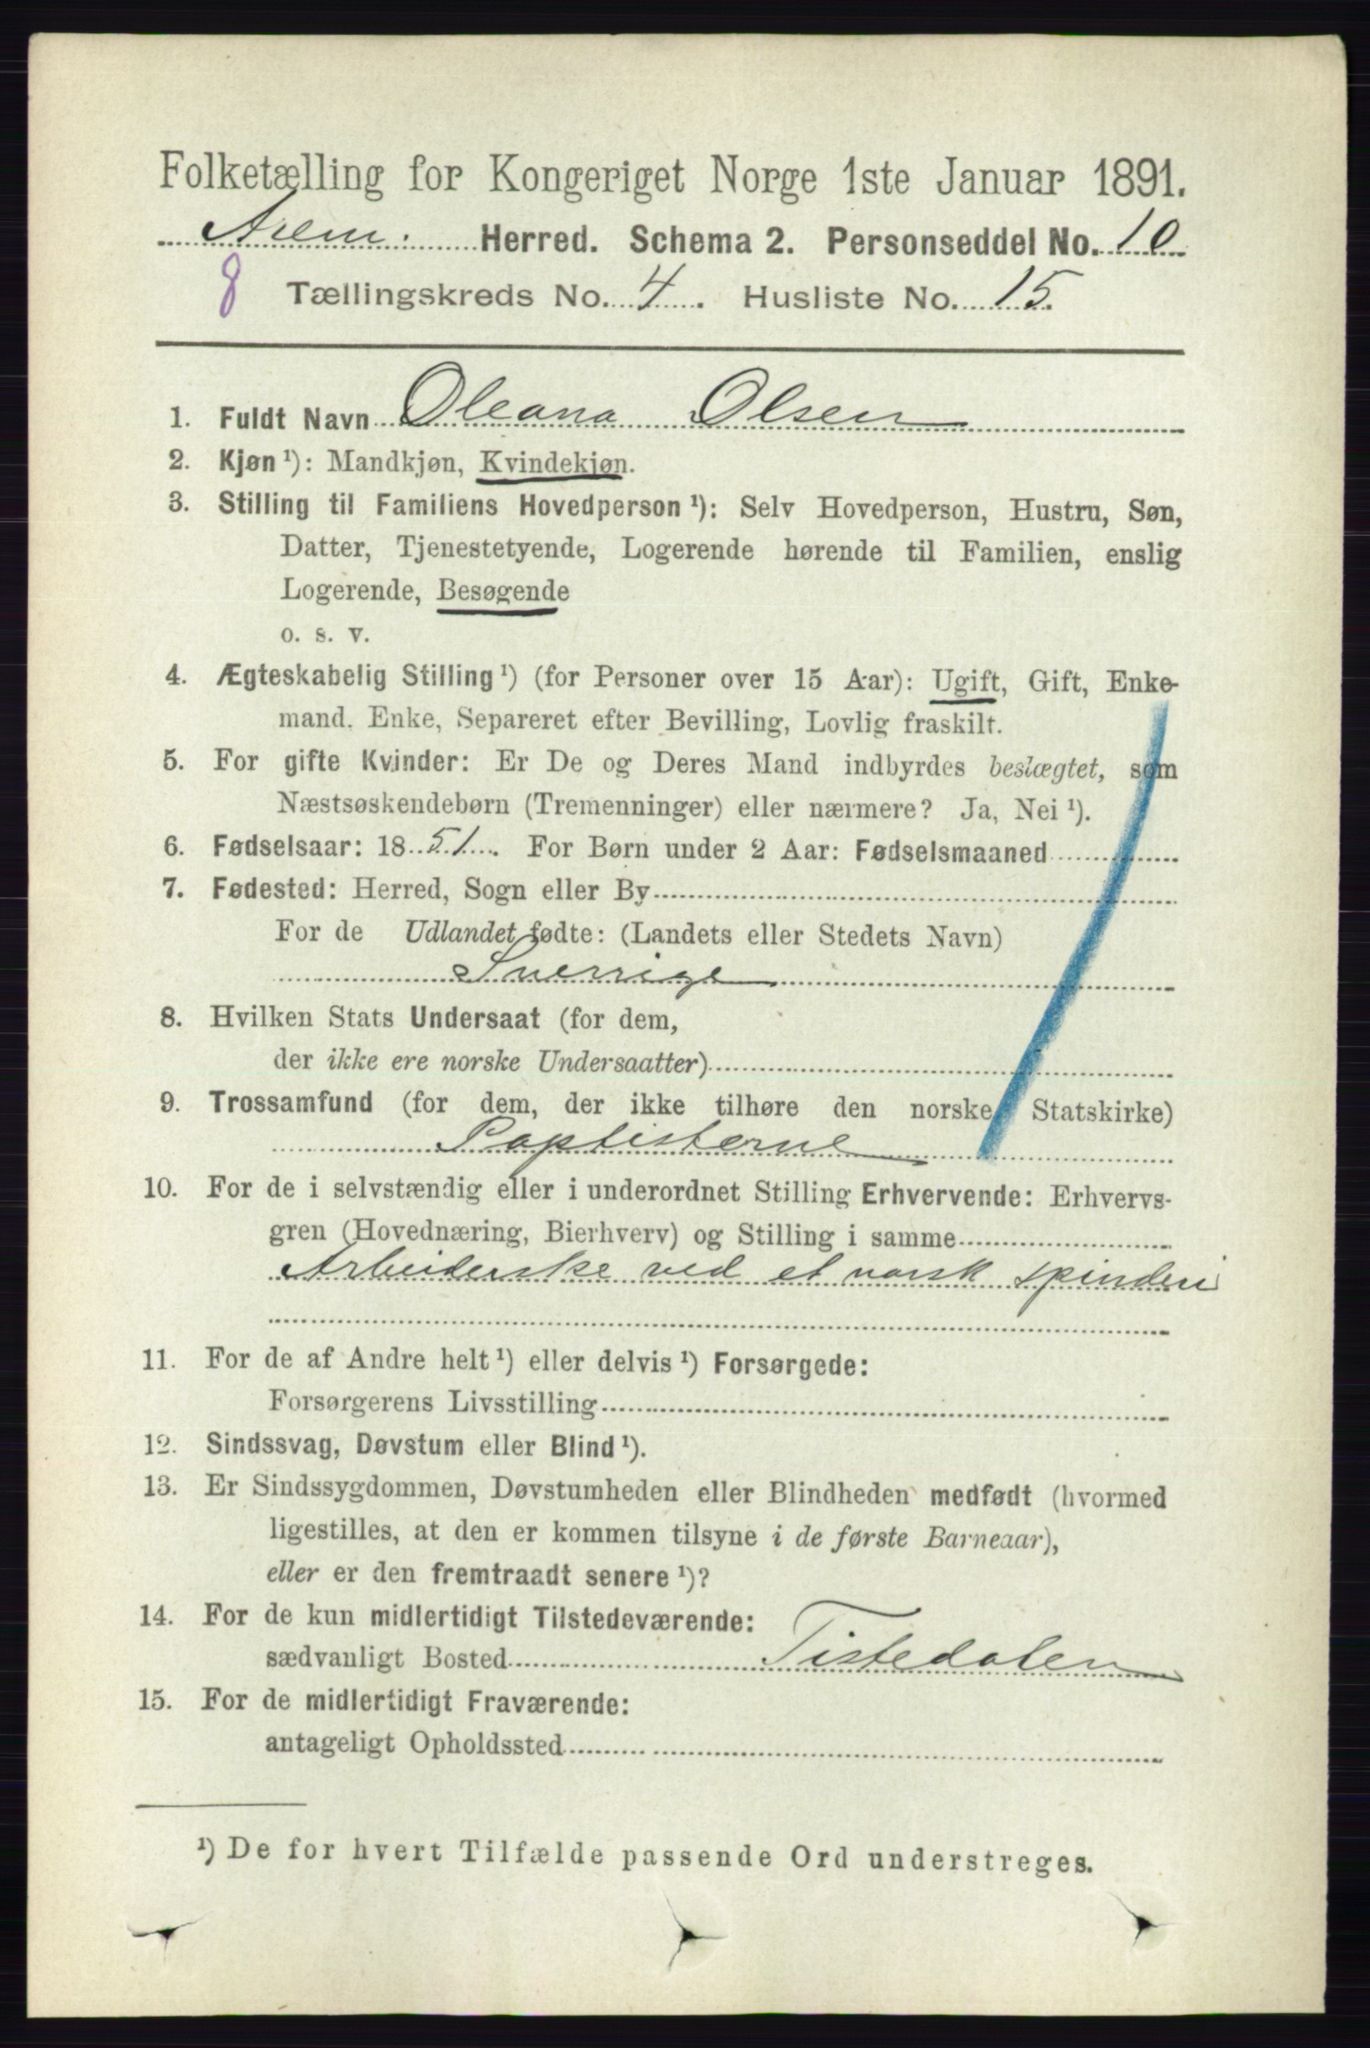 Folketælling for Kongeriget Norge 1ste Januar 1891.
Herred. Schema 2. Personseddel No. 10
8 Tællingskreds No. 4. Husliste No. 15.
1. Fuldt Navn Oleana Olsen
2. Kjøn ¹): Mandkjøn, Kvindekjøn.
3. Stilling til Familiens Hovedperson ¹): Selv Hovedperson, Hustru, Søn,
Datter, Tjenestetyende, Logerende hørende til Familien, enslig
Logerende, Besøgende
o. s. v.
4. Ægteskabelig Stilling ¹) (for Personer over 15 Aar): Ugift, Gift, Enke-
mand. Enke, Separeret efter Bevilling, Lovlig fraskilt.
5. For gifte Kvinder: Er De og Deres Mand indbyrdes beslægtet, som
Næstsøskendebørn (Tremenninger) eller nærmere? Ja, Nei ¹).
6. Fødselsaar: 1851. For Børn under 2 Aar: Fødselsmaaned
7. Fødested: Herred, Sogn eller By
For de Udlandet fødte: (Landets eller Stedets Navn)
Sverrige
8. Hvilken Stats Undersaat (for dem,
der ikke ere norske Undersaatter)
9. Trossamfund (for dem, der ikke tilhøre den norske Statskirke)
Paptisterne
10. For de i selvstændig eller i underordnet Stilling Erhvervende: Erhvervs-
gren (Hovednæring, Bierhverv) og Stilling i samme
Arbeiderske ved et norsk spinderi
11. For de af Andre helt ¹) eller delvis ¹) Forsørgede:
Forsørgerens Livsstilling
12. Sindssvag, Døvstum eller Blind ¹).
13. Er Sindssygdommen, Døvstumheden eller Blindheden medfødt (hvormed
ligestilles, at den er kommen tilsyne i de første Barneaar),
eller er den fremtraadt senere ¹)?
14. For de kun midlertidigt Tilstedeværende:
sædvanligt Bosted Tistedalen
15. For de midlertidigt Fraværende:
antageligt Opholdssted
¹) De for hvert Tilfælde passende Ord understreges.